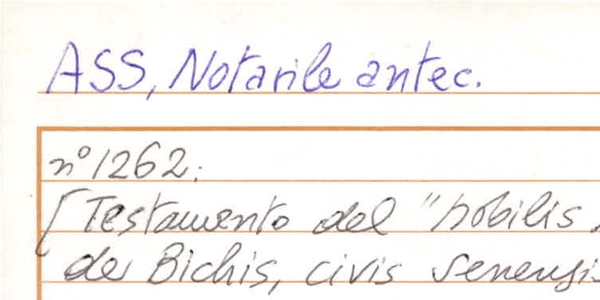 ASS, Notarile antec.
n° 1262:
[Testamento del "nobilis
de Bichis, civis senensis